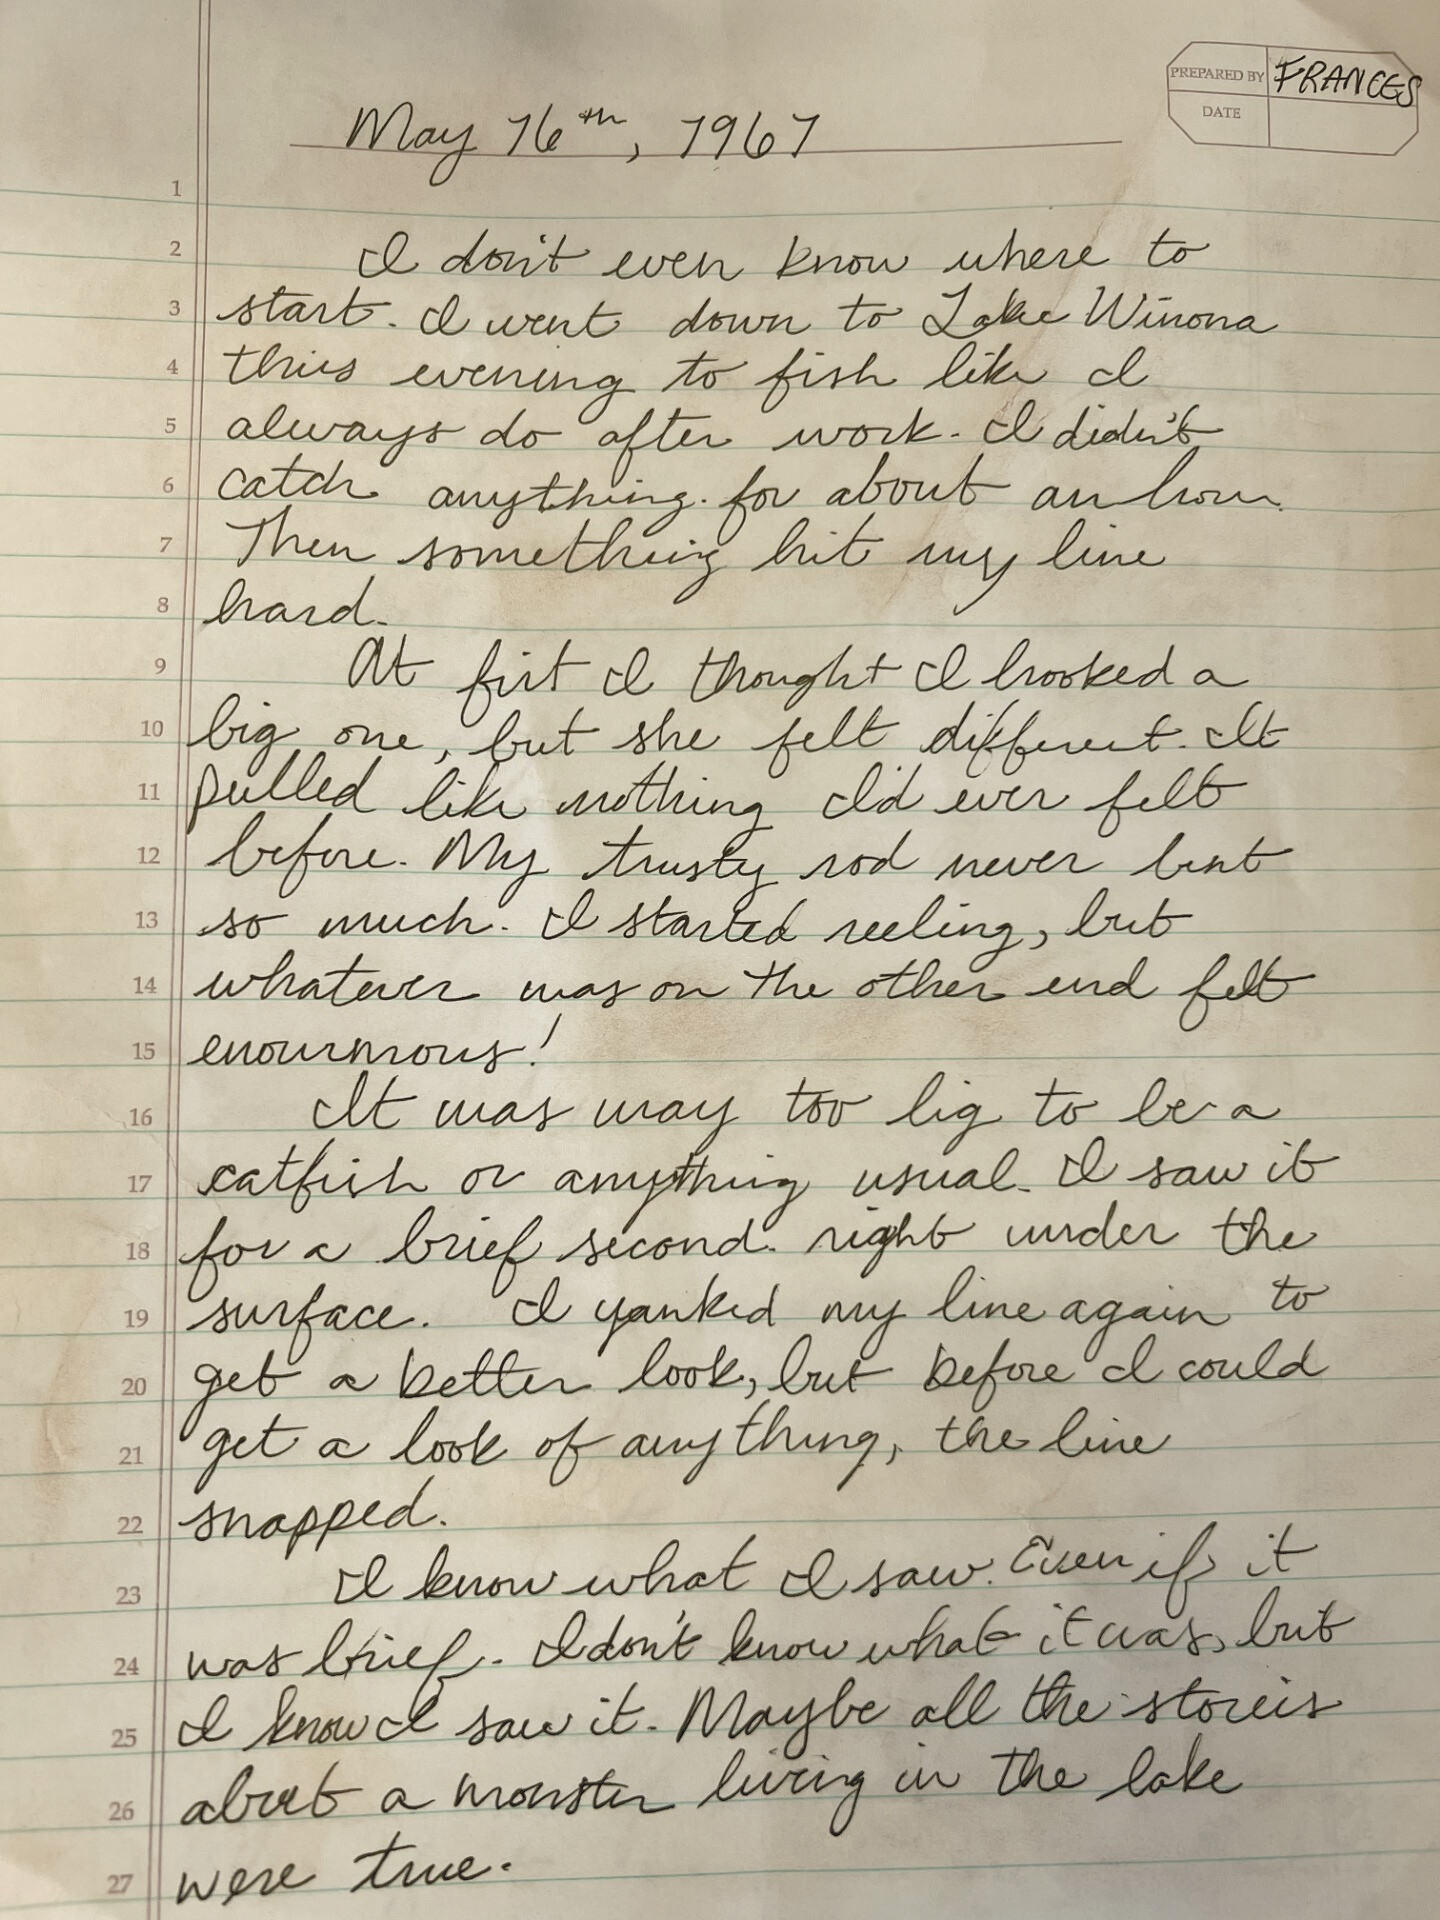 PREPARED BY FRANCES
DATE
May 16th, 1967
1
2 I don't even know where to
3 start. I went down to Lake Winona
4 this evening to fish like I
5 always do after work. I didn't
6 catch anything for about an hour.
7 Then something hit my line
8 hard.
9 At first I thought I hooked a
10 big one, but she felt different. It
11 pulled like nothing I'd ever felt
12 before. My trusty rod never bent
13 so much. I started reeling, but
14 whatever was on the other end felt
15 enourmous!
16 It was way too big to be a
17 catfish or anything usual. I saw it
18 for a brief second right under the
19 surface. I yanked my line again to
20 get a better look, but before I could
21 get a look of anything, the line
22 snapped.
23 I know what I saw. Even if it
24 was brief. I don't know what it was, but
25 I know I saw it. Maybe all the storeis
26 about a monster living in the lake
27 were true.